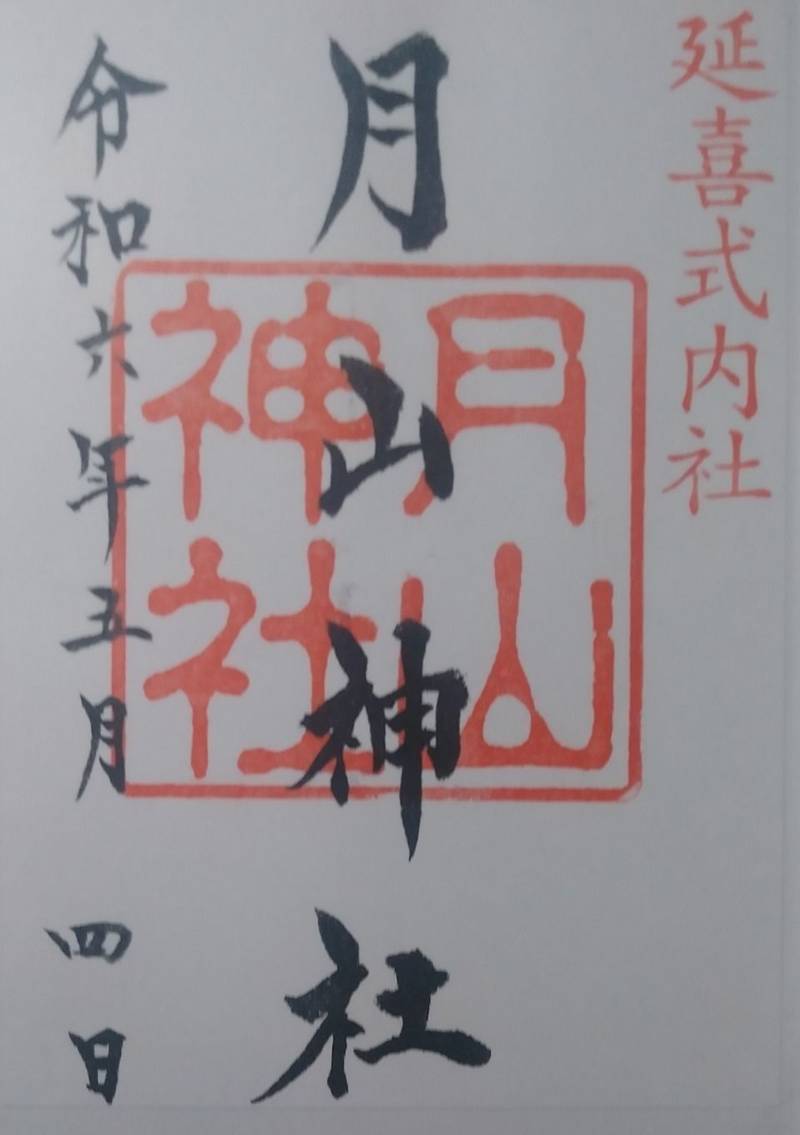 延喜式内社
月山神社
月山
神社
令和六年五月四日